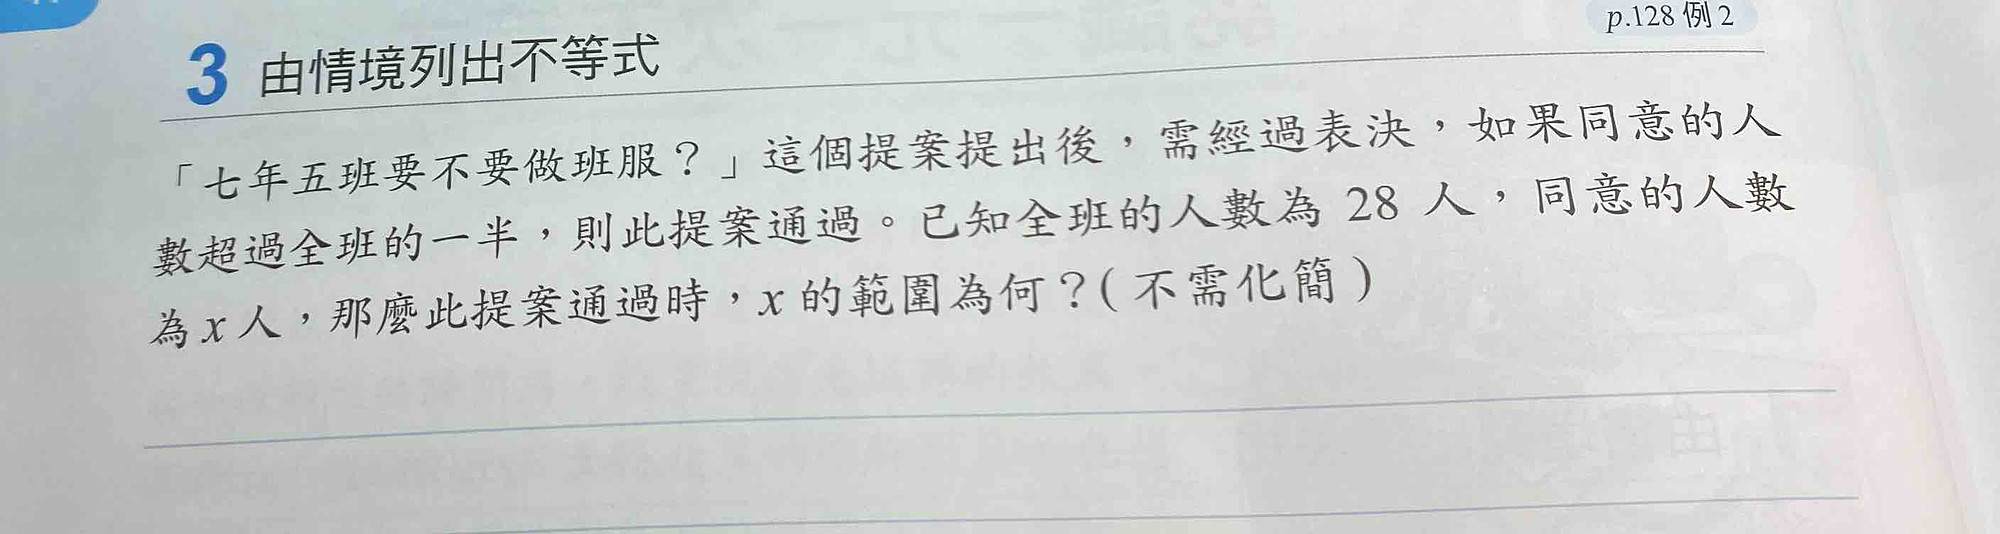 p.128 例 2
3 由情境列出不等式
「七年五班要不要做班服？」這個提案提出後，需經過表決，如果同意的人
數超過全班的一半，則此提案通過。已知全班的人數為 28 人，同意的人數
為 x 人，那麼此提案通過時，x 的範圍為何？( 不需化簡 )